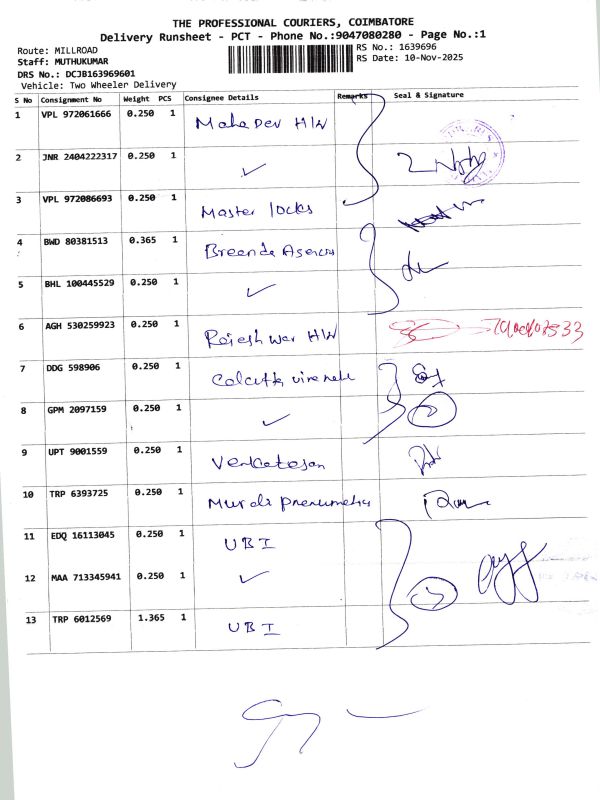 THE PROFESSIONAL COURIERS, COIMBATORE
Delivery Runsheet - PCT - Phone No.:9047080280 - Page No.:1
Route: MILLROAD
Staff: MUTHUKUMAR
DRS No.: DCJB163969601
Vehicle: Two Wheeler Delivery
RS No.: 1639696
RS Date: 10-Nov-2025
S No Consignment No Weight PCS Consignee Details Remarks Seal & Signature
1 VPL 972061666 0.250 1 Mahadev H/W
2 JNR 2404222317 0.250 1 ✓
3 VPL 972086693 0.250 1 Master locks
4 BWD 80381513 0.365 1
5 BHL 100445529 0.250 1 ✓
6 AGH 530259923 0.250 1 Rajeshwar H/W
7 DDG 598906 0.250 1 Calcutta
8 GPM 2097159 0.250 1 ✓
9 UPT 9001559 0.250 1 Venkatesan
10 TRP 6393725 0.250 1 Murali
11 EDQ 16113045 0.250 1 UBI
12 MAA 713345941 0.250 1 ✓
13 TRP 6012569 1.365 1 UBI